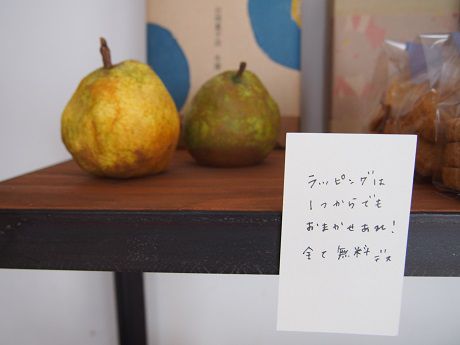 ラッピングは
1つからでも
おまかせあれ!
全て無料デス